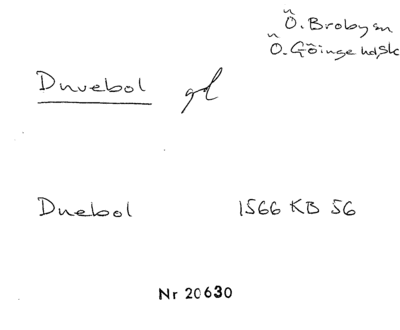 Ö. Broby sn
Ö. Göinge hd sk
Duvebol gd
Duebol 1566 KB 56
Nr 20630